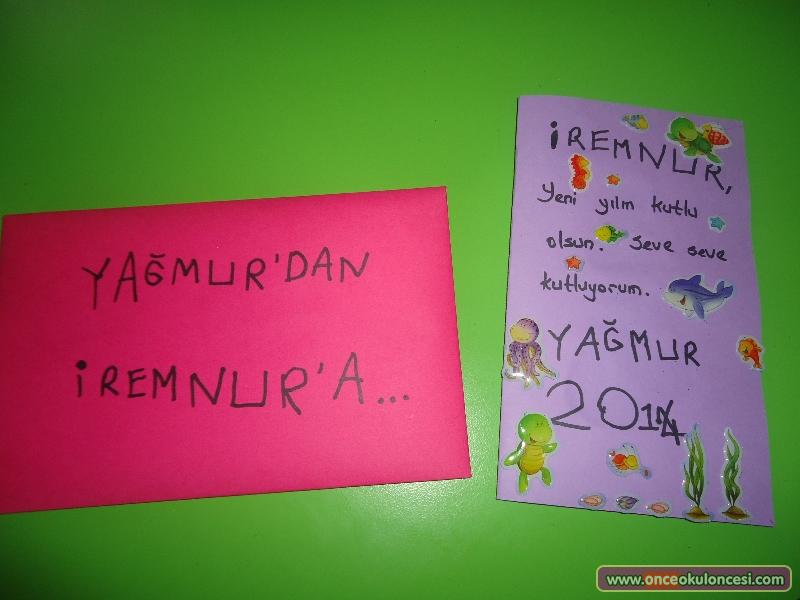 YAĞMUR'DAN
İREMNUR'A...
İREMNUR,
Yeni yılın kutlu
olsun. Seve seve
kutluyorum.
YAĞMUR
2014
www.onceokuloncesi.com